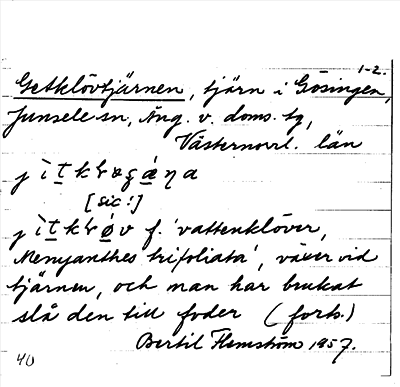 1-2.
Getklövtjärnen, tjärn i Gösingen,
Junsele sn, Ång. v. doms. tg,
Västernorrl. län
[sic!]
f. 'vattenklöver,
Menyanthes trifoliata', växer vid
tjärnen, och man har brukat
slå den till foder (forts.)
Bertil Flemström 1957.
40